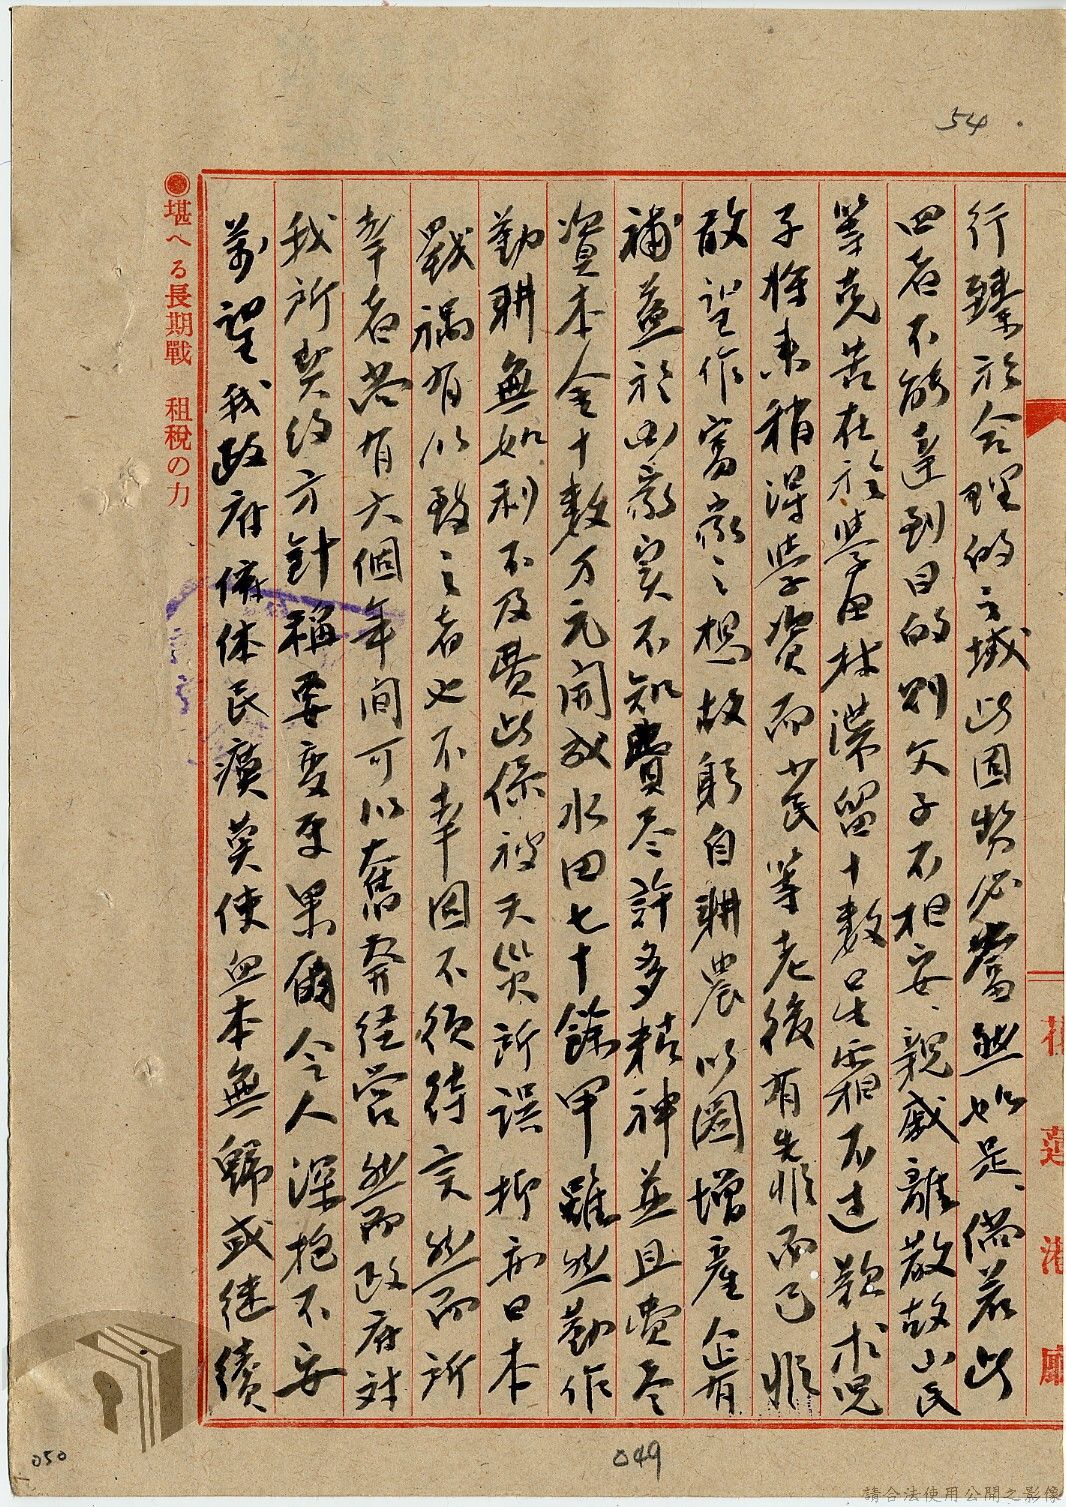 54
行臻於合理的之域此固勢必當然如是、倘若此
四者不能達到目的則父子不相安、親戚離散故小民
等克苦在於學田村滯留十數星霜不過欵求兒
子將來稍得學資而小民等老後有先非而已非
敢望作富豪之想故躬自耕農以圖增產企有
補益於山豪實不知費尽許多精神並且費尽
資本金十數万元開成水田七十餘甲雖然勤作
勤耕無如利不及費此係被天災所誤抑亦日本
戰禍有以致之者也不幸因不須待言然而所
幸者尚有六個年間可以奮奔经营然而政府对
我所契約方針稱要变更果爾令人深抱不安
万望我政府俯体民瘼莫使血本無歸或继續
●堪へる長期戰　租稅の力
花蓮港廳
049
050
請合法使用公開之影像